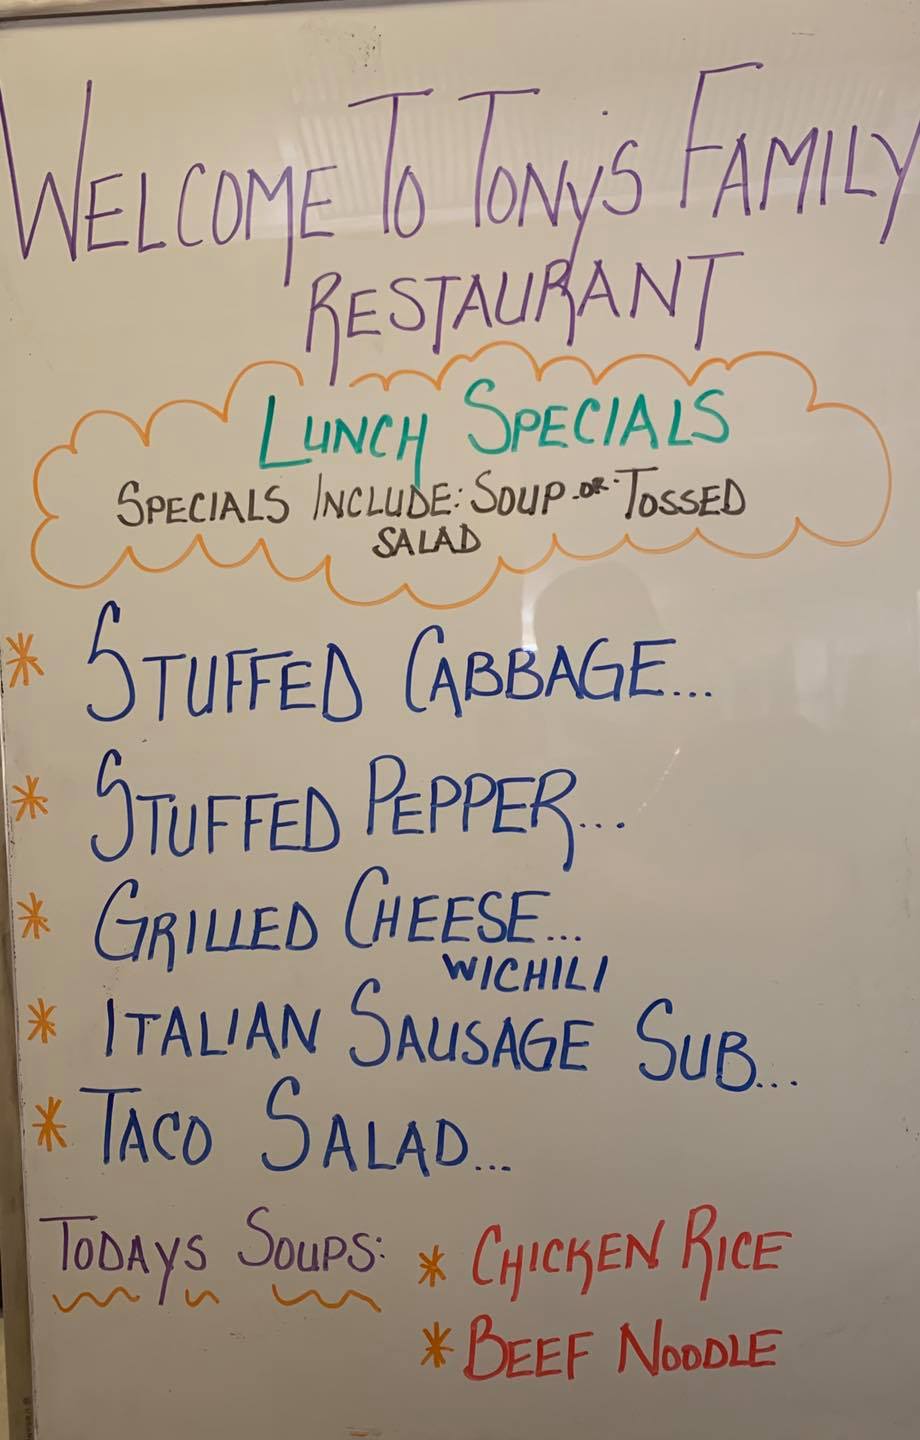 WELCOME TO TONY'S FAMILY
RESTAURANT
LUNCH SPECIALS
SPECIALS INCLUDE: SOUP -OR- TOSSED
SALAD
* STUFFED CABBAGE...
* STUFFED PEPPER...
* GRILLED CHEESE...
W/CHILI
* ITALIAN SAUSAGE SUB...
* TACO SALAD...
TODAYS SOUPS: * CHICKEN RICE
* BEEF NOODLE